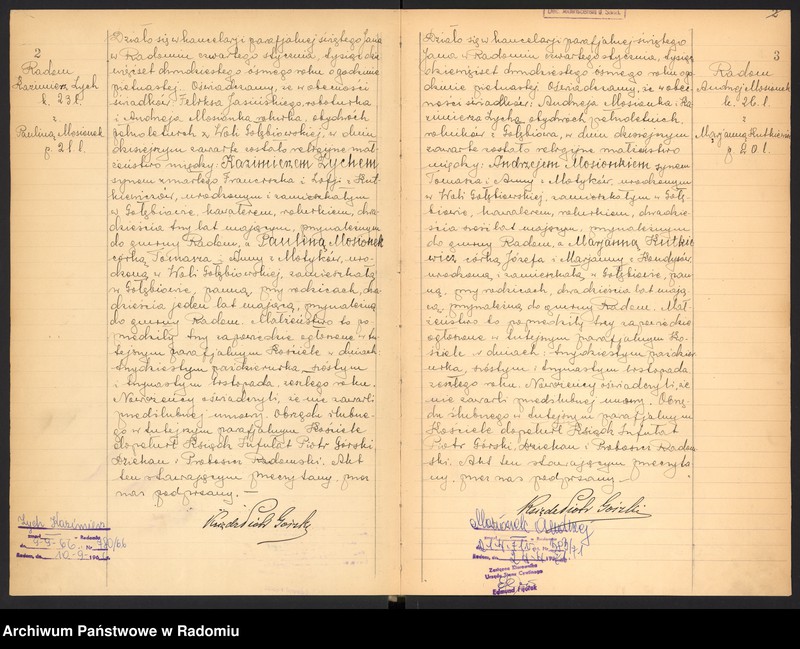 2
Radom
Kazimierz Zych
l. 23 k.
z
Pauliną Mosionek
p. 21 l.
Działo się w kancelarji parafjalnej świętego Jana
w Radomiu czwartego stycznia, tysiąc dzie
więćset dwudziestego ósmego roku o godzinie
piętnastej. Oświadczamy, że w obecności
świadków: Feliksa Jasińskiego, robotnika
i Andrzeja Mosionka rolnika, obydwóch
pełnoletnich z Woli Gołębiowskiej, w dniu
dzisiejszym zawarte zostało religijne mał
żeństwo między: Kazimierzem Zychem
synem zmarłego Franciszka i Zofji z Rut
kiewiczów, urodzonym i zamieszkałym
w Gołębiowie, kawalerem, rolnikiem, dwa
dzieścia trzy lat mającym, przynależnym
do gminy Radom, a Pauliną Mosionek
córką Tomasza i Anny z Motyków, uro
dzoną w Woli Gołębiowskiej, zamieszkałą
w Gołębiowie, panną, przy rodzicach, dwa
dzieścia jeden lat mającą, przynależną
do gminy Radom. Małżeństwo to po
przedziły trzy zapowiedzie ogłoszone w tu
tejszym parafjalnym Kościele w dniach:
trzydziestym października, szóstym
i trzynastym listopada, zeszłego roku.
Nowożeńcy oświadczyli, że nie zawarli
przedślubnej umowy. Obrzędu ślubne
go w tutejszym parafjalnym Kościele
dopełnił Ksiądz Infułat Piotr Górski,
Dziekan i Proboszcz Radomski. Akt
ten stawającym przeczytany, przez
nas podpisany. —
Ksiądz Piotr Górski
Zych Kazimierz
9-9-66 Nr 790/66
Radom, dn. 10-9-1966
3
Radom
Andrzej Mosionek
k. 26 l.
z
Marjanną Rutkiewicz
p. 20 l.
Działo się w kancelarji parafjalnej świętego
Jana w Radomiu czwartego stycznia, tysiąc
dziewięćset dwudziestego ósmego roku o go
dzinie piętnastej. Oświadczamy, że w obec
ności świadków: Andrzeja Mosionka i Ka
zimierza Zycha, obydwóch pełnoletnich,
rolników z Gołębiowa, w dniu dzisiejszym
zawarte zostało religijne małżeństwo
między: Andrzejem Mosionkiem synem
Tomasza i Anny z Motyków, urodzonym
w Woli Gołębiowskiej, zamieszkałym w Gołę
biowie, kawalerem, rolnikiem, dwadzie
ścia sześć lat mającym, przynależnym
do gminy Radom, a Marjanną Rutkie
wicz córką Józefa i Marjanny z
urodzoną i zamieszkałą w Gołębiowie, pan
ną, przy rodzicach, dwadzieścia lat mają
cą, przynależną do gminy Radom. Mał
żeństwo to poprzedziły trzy zapowiedzie
ogłoszone w tutejszym parafjalnym Ko
ściele w dniach: trzydziestym paździer
nika, szóstym i trzynastym listopada
zeszłego roku. Nowożeńcy oświadczyli, że
nie zawarli przedślubnej umowy. Obrzę
du ślubnego w tutejszym parafjalnym
Kościele dopełnił Ksiądz Infułat
Piotr Górski, Dziekan i Proboszcz Radom
ski. Akt ten stawającym przeczyta
ny, przez nas podpisany. —
Ksiądz Piotr Górski
Mosionek Andrzej
Radom, dn.
Zastępca Kierownika
Urzędu Stanu Cywilnego
Edmund
Archiwum Państwowe w Radomiu